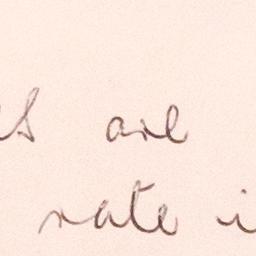 are
rate i